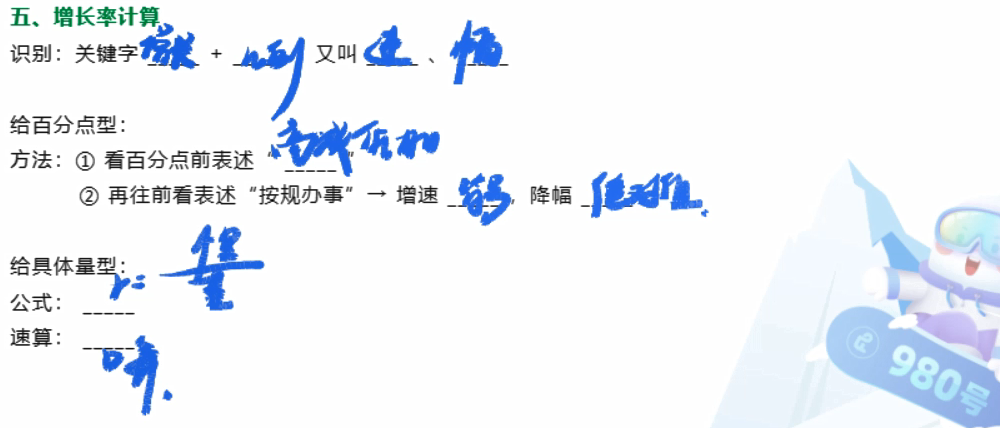 五、增长率计算
识别：关键字 增长 + 比例 又叫 速 、 幅
给百分点型：
方法：① 看百分点前表述“ 高减低加 ”
② 再往前看表述“按规办事”→ 增速 ，降幅
给具体量型：
公式： r=
速算：
980号